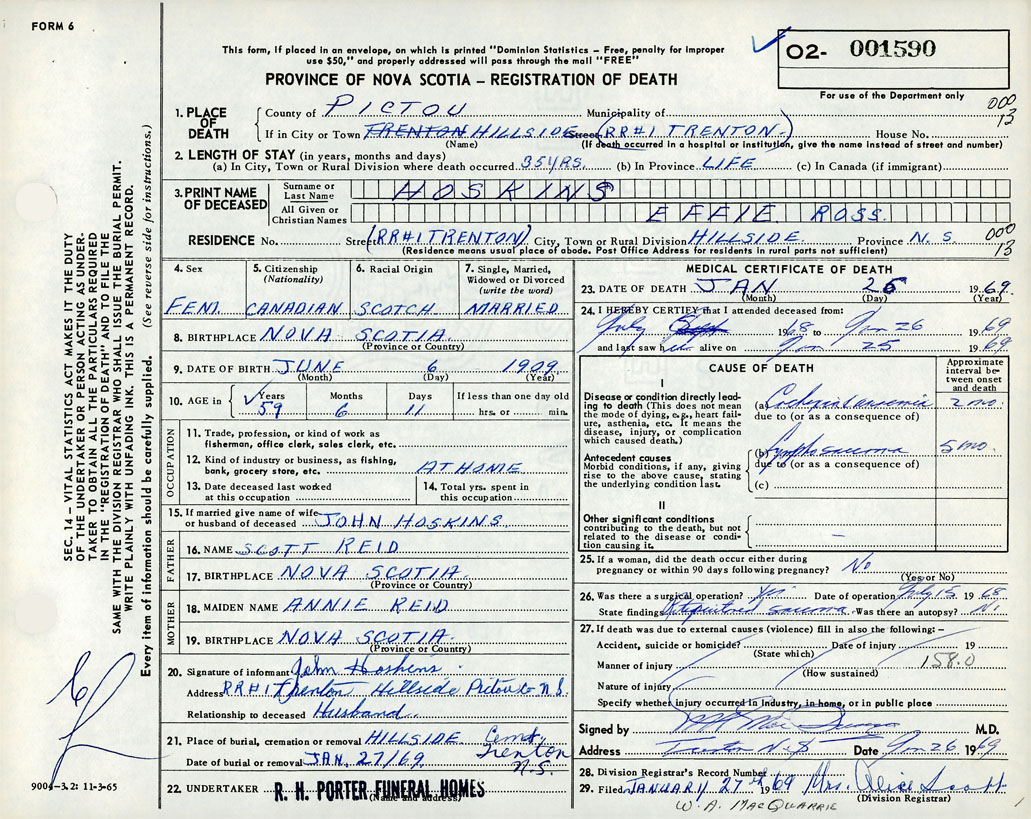 FORM 6
This form, if placed in an envelope, on which is printed "Dominion Statistics – Free, penalty for improper
use $50," and properly addressed will pass through the mail "FREE"
PROVINCE OF NOVA SCOTIA – REGISTRATION OF DEATH
O2- 001590
For use of the Department only
000
13
1. PLACE OF DEATH
County of PICTOU Municipality of
If in City or Town TRENTON HILLSIDE Street (RR#1 TRENTON) House No.
(Name) (If death occurred in a hospital or institution, give the name instead of street and number)
2. LENGTH OF STAY (in years, months and days)
(a) In City, Town or Rural Division where death occurred 35 YRS. (b) In Province LIFE (c) In Canada (if immigrant)
3. PRINT NAME OF DECEASED
Surname or Last Name HOSKINS
All Given or Christian Names EFFIE ROSS
000
13
RESIDENCE No. Street (RR#1 TRENTON) City, Town or Rural Division HILLSIDE Province N. S.
(Residence means usual place of abode. Post Office Address for residents in rural parts not sufficient)
4. Sex FEM.
5. Citizenship (Nationality) CANADIAN
6. Racial Origin SCOTCH
7. Single, Married, Widowed or Divorced (write the word) MARRIED
8. BIRTHPLACE NOVA SCOTIA
(Province or Country)
9. DATE OF BIRTH JUNE 6 1909
(Month) (Day) (Year)
10. AGE in Years 59 Months 6 Days 11 If less than one day old
hrs. or min.
OCCUPATION
11. Trade, profession, or kind of work as
fisherman, office clerk, sales clerk, etc.
12. Kind of industry or business, as fishing,
bank, grocery store, etc. AT HOME
13. Date deceased last worked
at this occupation
14. Total yrs. spent in
this occupation
15. If married give name of wife
or husband of deceased JOHN HOSKINS
FATHER
16. NAME SCOTT REID
17. BIRTHPLACE NOVA SCOTIA
(Province or Country)
MOTHER
18. MAIDEN NAME ANNIE REID
19. BIRTHPLACE NOVA SCOTIA
(Province or Country)
20. Signature of informant John Hoskins
Address RR#1 Trenton Hillside Pictou Co N.S.
Relationship to deceased Husband
21. Place of burial, cremation or removal HILLSIDE Cem. Trenton N.S.
Date of burial or removal JAN. 27/69
22. UNDERTAKER R. H. PORTER FUNERAL HOMES
(Name and address)
MEDICAL CERTIFICATE OF DEATH
23. DATE OF DEATH JAN 26 1969
(Month) (Day) (Year)
24. I HEREBY CERTIFY that I attended deceased from:
July 1968 to Jan 26 1969
and last saw her alive on Jan 25 1969
CAUSE OF DEATH
Approximate interval between onset and death
I
Disease or condition directly leading to death (This does not mean the mode of dying, e.g., heart failure, asthenia, etc. It means the disease, injury, or complication which caused death.)
(a) 2 mo.
due to (or as a consequence of)
Antecedent causes
Morbid conditions, if any, giving rise to the above cause, stating the underlying condition last.
(b) Lymphosarcoma 5 mo.
due to (or as a consequence of)
(c)
II
Other significant conditions
contributing to the death, but not related to the disease or condition causing it.
–
25. If a woman, did the death occur either during
pregnancy or within 90 days following pregnancy? No
(Yes or No)
26. Was there a surgical operation? Yes Date of operation July 15 1968
State findings sarcoma Was there an autopsy? No
27. If death was due to external causes (violence) fill in also the following: –
Accident, suicide or homicide? Date of injury 19
(State which)
Manner of injury 158.0
(How sustained)
Nature of injury
Specify whether injury occurred in industry, in home, or in public place
Signed by M.D.
Address Trenton N.S. Date Jan 26 1969
28. Division Registrar's Record Number
29. Filed JANUARY 27th 1969 Mrs. Alice Scott
(Division Registrar)
W. A. MACQUARRIE
SEC. 14 – VITAL STATISTICS ACT MAKES IT THE DUTY
OF THE UNDERTAKER OR PERSON ACTING AS UNDER-
TAKER TO OBTAIN ALL THE PARTICULARS REQUIRED
IN THE "REGISTRATION OF DEATH" AND TO FILE THE
SAME WITH THE DIVISION REGISTRAR WHO SHALL ISSUE THE BURIAL PERMIT.
WRITE PLAINLY WITH UNFADING INK. THIS IS A PERMANENT RECORD.
Every item of information should be carefully supplied. (See reverse side for instructions.)
9004–3.2: 11-3-65